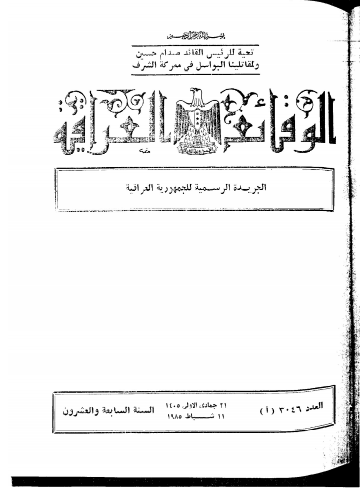 بسم الله الرحمن الرحيم
تحية للرئيس القائد صدام حسين
ولمقاتلينا البواسل في معركة الشرف
الوقائع العراقية
الجريدة الرسمية للجمهورية العراقية
العدد ٣٠٤٦ (أ)
٢١ جمادى الاولى ١٤٠٥
١١ شباط ١٩٨٥
السنة السابعة والعشرون